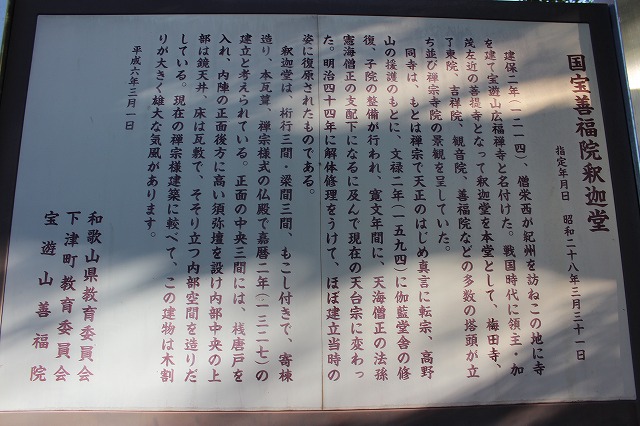 国宝善福院釈迦堂
指定年月日　昭和二十八年三月三十一日
建保二年(一二一四)、僧栄西が紀州を訪ねこの地に寺
を建て宝遊山広福禅寺と名付けた。戦国時代に領主・加
茂左近の菩提寺となって釈迦堂を本堂として、梅田寺、
了東院、吉祥院、観音院、善福院などの多数の塔頭が立
ち並び禅宗寺院の景観を呈していた。
同寺は、もとは禅宗で天正のはじめ真言に転宗、高野
山の援護のもとに、文禄二年(一五九四)に伽藍堂舎の修
復、子院の整備が行われ、寛文年間に、天海僧正の法孫
憲海僧正の支配下になるに及んで現在の天台宗に変わっ
た。明治四十四年に解体修理をうけて、ほぼ建立当時の
姿に復原されたものである。
釈迦堂は、桁行三間・梁間三間、もこし付きで、寄棟
造り、本瓦葺、禅宗様式の仏殿で嘉暦二年(一三二七)の
建立と考えられている。正面の中央三間には、桟唐戸を
入れ、内陣の正面後方に高い須弥壇を設け内部中央の上
部は鏡天井、床は瓦敷で、そそり立つ内部空間を造りだ
している。現在の禅宗様建築に較べて、この建物は木割
りが大きく雄大な気風があります。
平成六年三月一日
和歌山県教育委員会
下津町教育委員会
宝遊山善福院